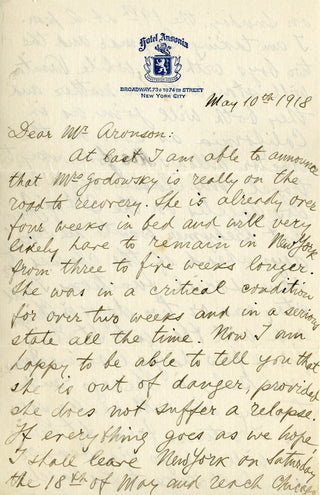 Hotel Ansonia
BROADWAY, 73D TO 74TH STREET
NEW YORK CITY
May 10th 1918
Dear Mr Aronson:
At last I am able to announce
that Mrs Godowsky is really on the
road to recovery. She is already over
four weeks in bed and will very
likely have to remain in New York
from three to five weeks longer.
She was in a critical condition
for over two weeks and in a serious
state all the time. Now I am
happy to be able to tell you that
she is out of danger, provided
she does not suffer a relapse.
If everything goes as we hope
I shall leave New York on Saturday
the 18th of May and reach Chicago